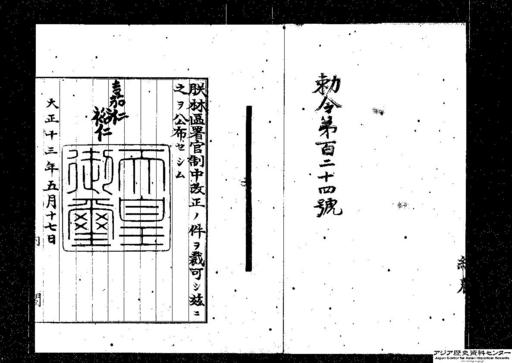 勅令第百二十四號
朕林區署官制中改正ノ件ヲ裁可シ玆ニ
之ヲ公布セシム
嘉仁
裕仁
天皇
御璽
大正十三年五月十七日
内閣
アジア歴史資料センター
Japan Center for Asian Historical Records